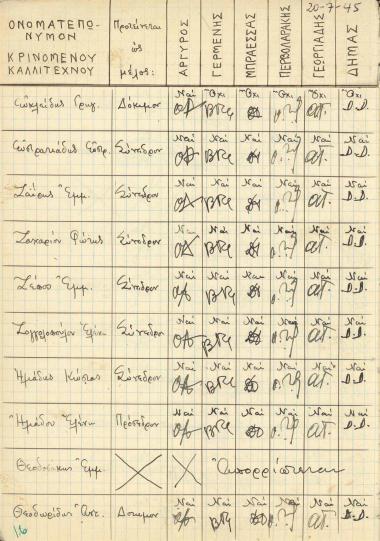 20-7-45
ΟΝΟΜΑΤΕΠΩ-
ΝΥΜΟΝ
ΚΡΙΝΟΜΕΝΟΥ
ΚΑΛΛΙΤΕΧΝΟΥ
Προτείνεται
ὡς
μέλος:
ΑΡΓΥΡΟΣ
ΓΕΡΜΕΝΗΣ
ΜΠΡΑΕΣΣΑΣ
ΠΕΡΒΟΛΑΡΑΚΗΣ
ΓΕΩΡΓΙΑΔΗΣ
ΔΗΜΑΣ
Εὐκλείδης Δόκιμον Ναί Ὄχι Ὄχι Ὄχι Ὄχι Ὄχι
Εὐστρατιάδης Εὐστρ. Σύνεδρον Ναί Ναί Ναί Ναί Ναί Ναί
Ζαΐρης Ἐμμ. Σύνεδρον Ναί Ναί Ναί Ναί Ναί Ναί
Ζαχαρίου Φώτης Σύνεδρον Ναί Ναί Ναί Ναί Ναί Ναί
Ζέπος Ἐμμ. Σύνεδρον Ναί Ναί Ναί Ναί Ναί Ναί
Ζογγολοπούλου Ἑλένη Σύνεδρον Ναί Ναί Ναί Ναί Ναί Ναί
Ἠλιάδης Κώστας Σύνεδρον Ναί Ναί Ναί Ναί Ναί Ναί
Ἠλιάδου Ἑλένη Πρόεδρον Ναί Ναί Ναί Ναί Ναί Ναί
Θεοδωράκης Ἐμμ. Ἀπορρίπτεται
Θεοδωρίδης Δόκιμον Ναί Ναί Ναί Ναί Ναί Ναί
16